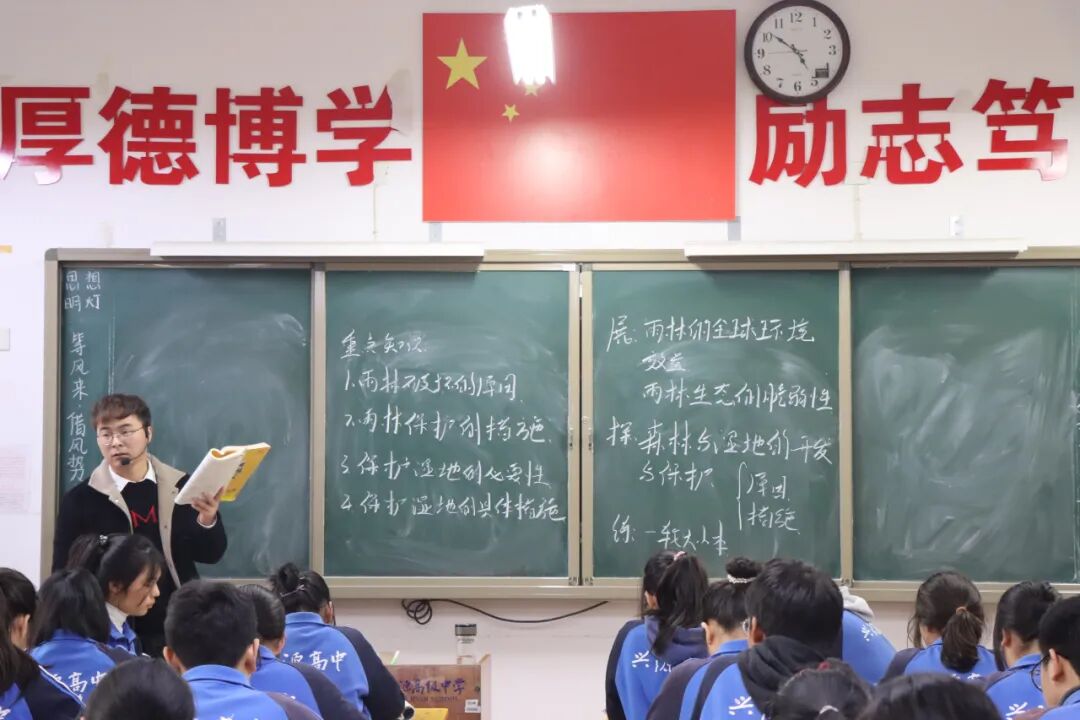 厚德博学
励志笃
思想
明灯
等风来 借风势
重点知识
1.雨林破坏的原因
2.雨林保护的措施
3.保护湿地的必要性
4.保护湿地的具体措施
展:雨林的全球环境
效益
雨林生态的脆弱性
探:森林与湿地的开发
与保护
原因
措施
练:一轮大小本
高中
高级中学
兴
兴